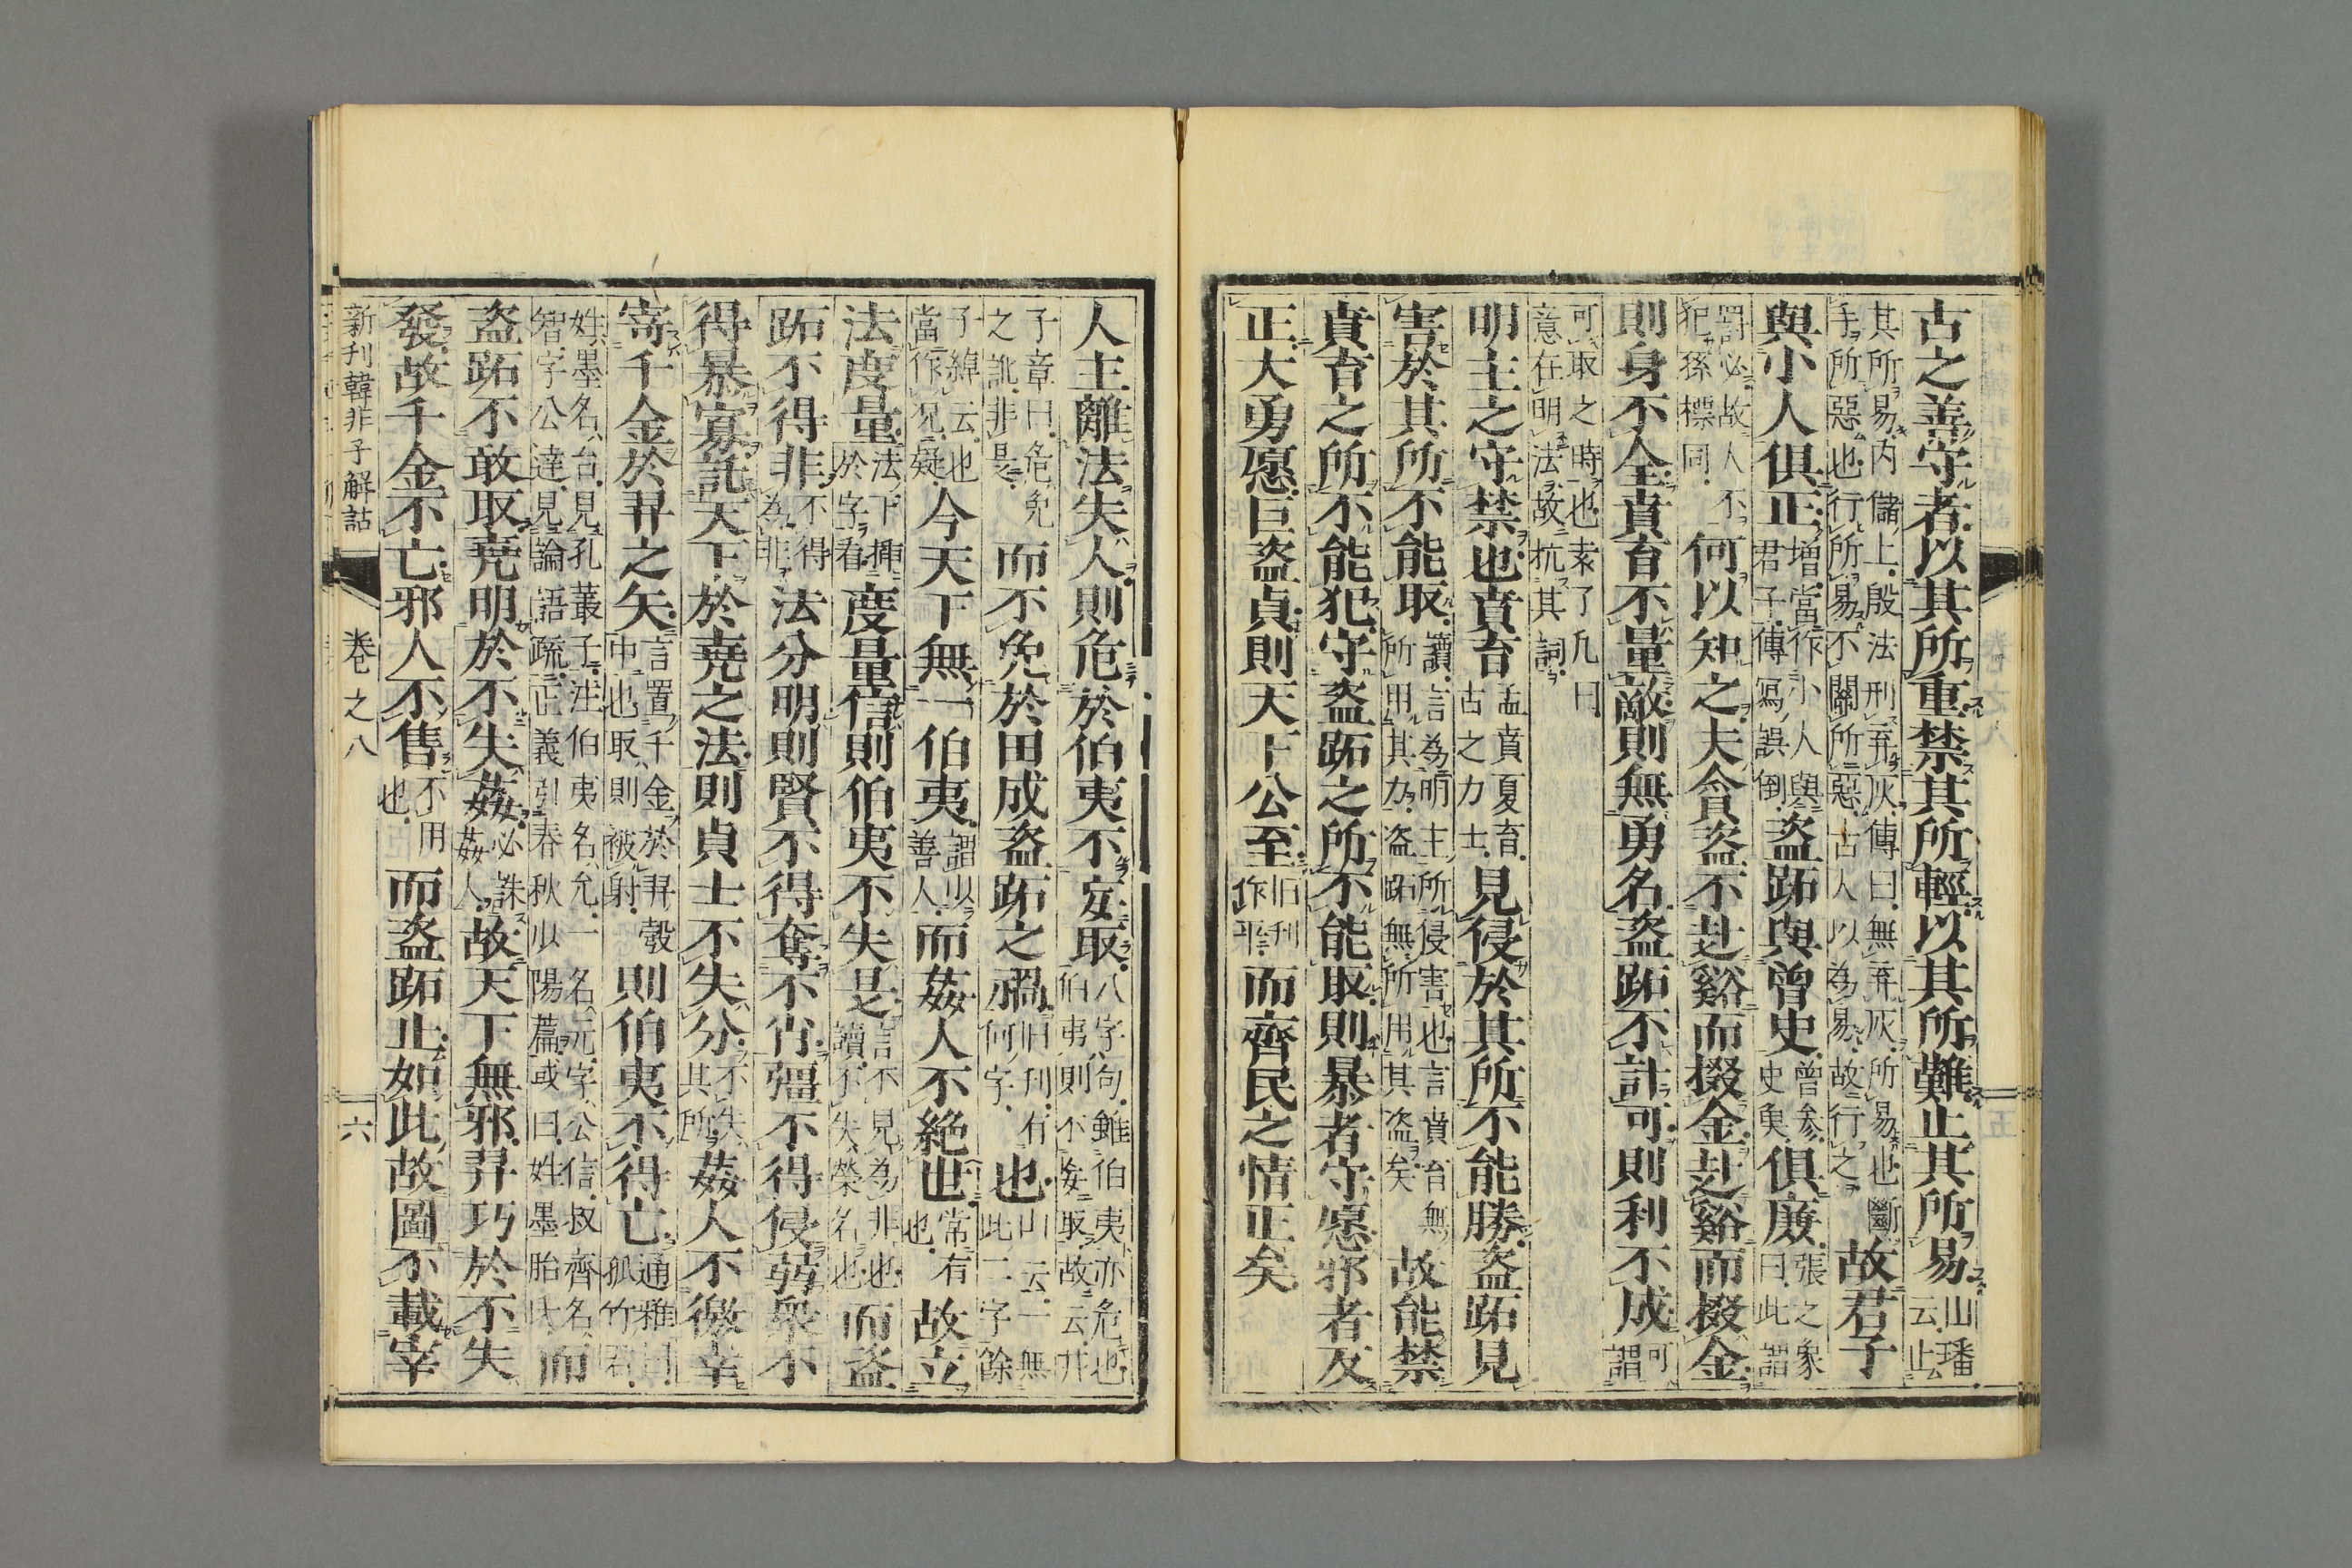 古之善守者以其所重禁其所輕以其所難止其所易山璠云止
其所易内儲上殷法刑弃灰傳曰無弃灰所易也斷手所惡也行所易不關所惡古人以為易故行之故君子
與小人俱正增當作小人與君子傳寫誤倒盜跖與曾史曾參史魚俱廉張之象曰此謂
罰必故人不犯孫標同何以知之夫貪盜不赴谿而掇金赴谿而掇金
則身不全賁育不量敵則無勇名盜跖不計可則利不成可謂
可取之時也索了凡曰意在明法故抗其詞
明主之守禁也賁育孟賁夏育古之力士見侵於其所不能勝盜跖見
害於其所不能取讀言為明主所侵害也言賁育無所用其力盜跖無所用其盜矣故能禁
賁育之所不能犯守盜跖之所不能取則暴者守愿邪者反
正大勇愿巨盜貞則天下公至旧刊作平而齊民之情正矣
人主離法失人則危於伯夷不妄取八字句雖伯夷亦危也伯夷則不妄取故云爾
子章曰危免之訛非是而不免於田成盜跖之禍旧刊有何字也山云一無此二字餘
子緯云也當作况疑今天下無一伯夷謂以善人而姦人不絶世常有也故立
法度量法下於字挿看度量信則伯夷不失是言不見為非也讀不失榮名也而盜
跖不得非不得為非法分明則賢不得奪不肖彊不得侵弱衆不
得暴寡託天下於堯之法則貞士不失分不失其所姦人不徼幸
寄千金於羿之矢言置千金於羿彀中也取則被射則伯夷不得亡通雅曰孤竹君
姓墨名台見孔叢子注伯夷名允一名元字公信叔齊名智字公達見論語疏正義引春秋少陽篇或曰姓墨胎氏而
盜跖不敢取堯明於不失姦必誅姦人故天下無邪羿巧於不失
發故千金不亡邪人不售不用也而盜跖止如此故圖不載宰
新刊韓非子解詁 卷之八 六